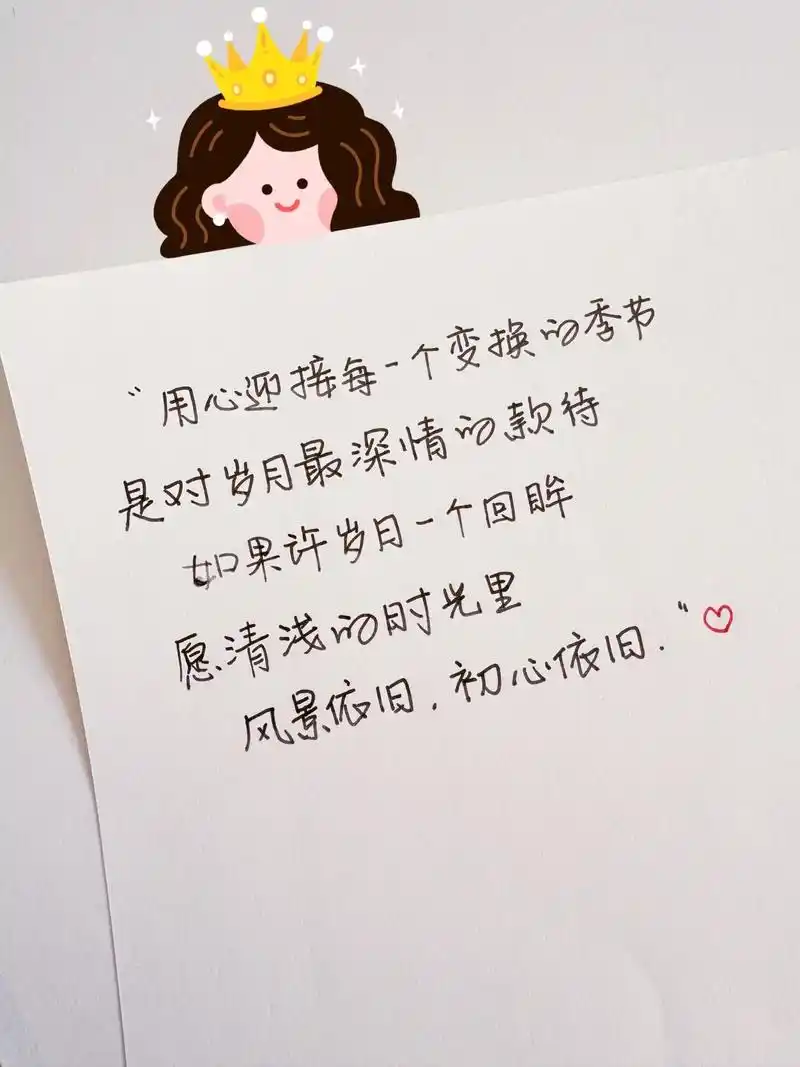 “用心迎接每一个变换的季节
是对岁月最深情的款待
如果许岁月一个回眸
愿清浅的时光里
风景依旧，初心依旧.”